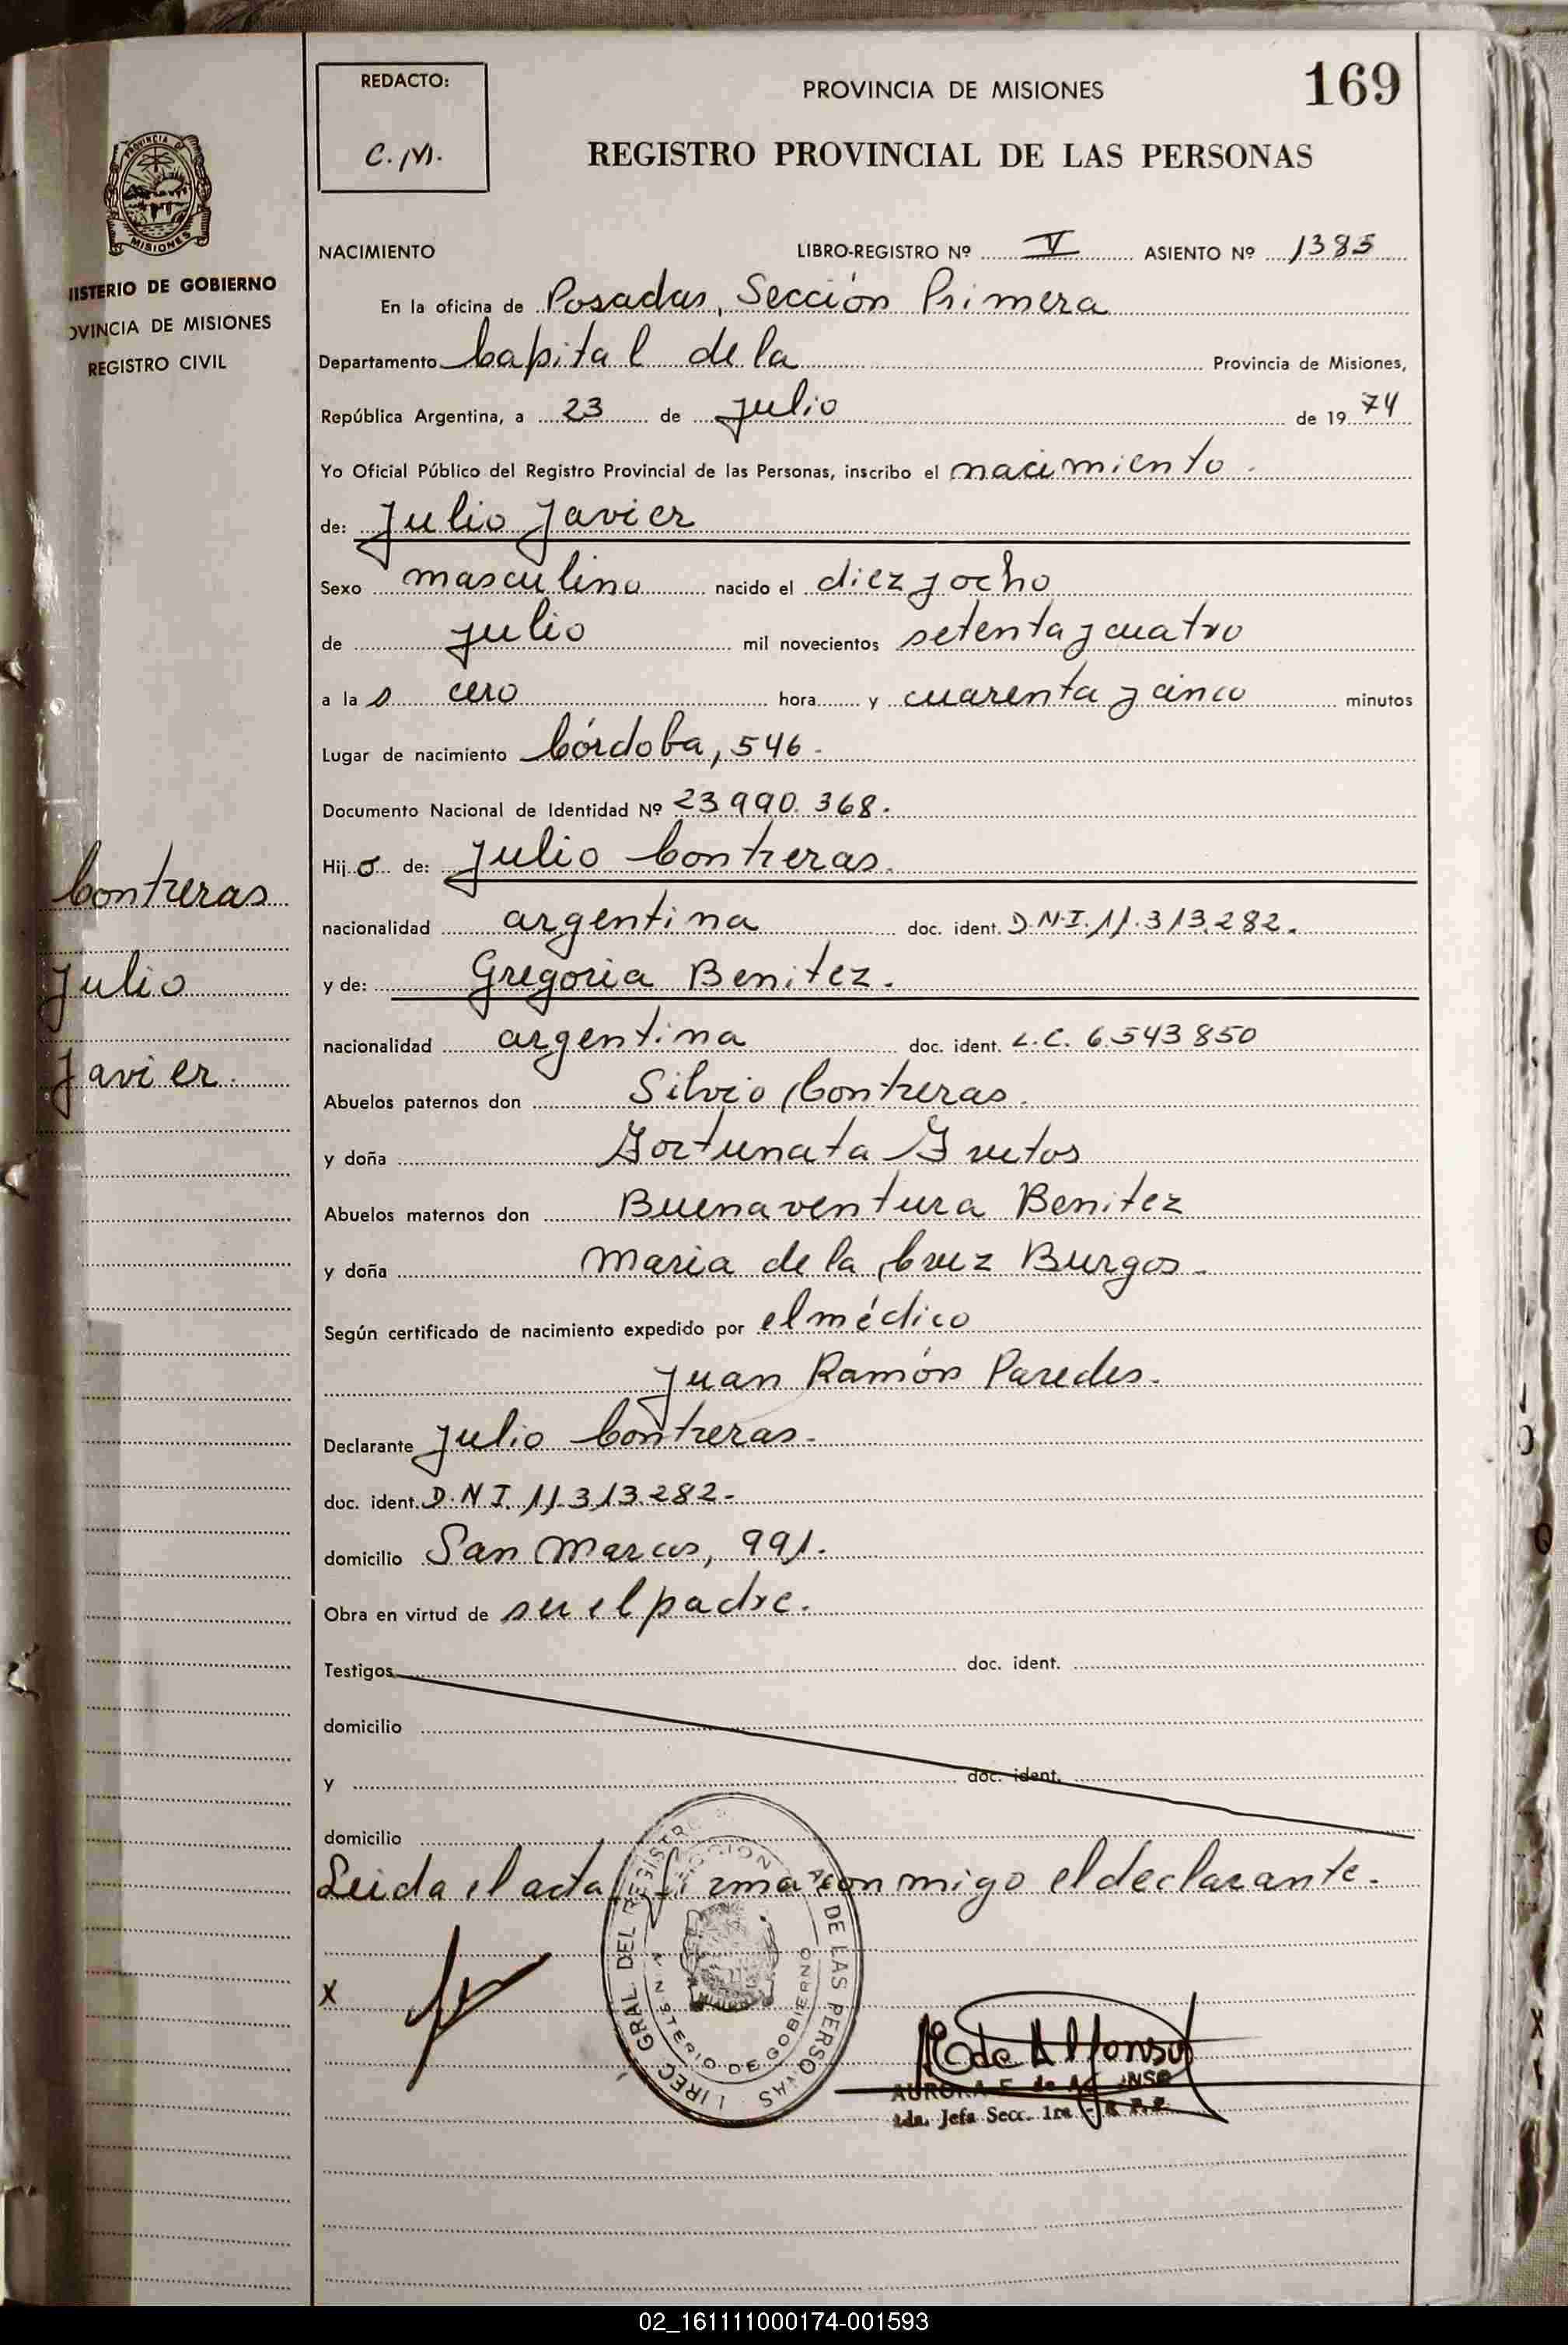 REDACTO:
C.M.
PROVINCIA DE MISIONES
169
REGISTRO PROVINCIAL DE LAS PERSONAS
PROVINCIA D
MISIONES
ISTERIO DE GOBIERNO
OVINCIA DE MISIONES
REGISTRO CIVIL
NACIMIENTO LIBRO-REGISTRO Nº V ASIENTO Nº 1385
En la oficina de Posadas, Sección Primera
Departamento Capital de la Provincia de Misiones,
República Argentina, a 23 de Julio de 19 74
Yo Oficial Público del Registro Provincial de las Personas, inscribo el nacimiento.
de: Julio Javier
Sexo masculino nacido el diez y ocho
de julio mil novecientos setenta y cuatro
a la s cero hora y cuarenta y cinco minutos
Lugar de nacimiento Córdoba, 546.
Documento Nacional de Identidad Nº 23.990.368.
Hij o de: Julio Contreras.
nacionalidad argentina doc. ident. D.N.I. 11.313.282.
y de: Gregoria Benitez.
nacionalidad argentina doc. ident. L.C. 6.543 850
Abuelos paternos don Silvio Contreras.
y doña Fortunata Frutos
Abuelos maternos don Buenaventura Benitez
y doña Maria de la Cruz Burgos.
Según certificado de nacimiento expedido por el médico
Juan Ramón Paredes.
Declarante Julio Contreras.
doc. ident. D.N.I. 11.313.282-
domicilio San Marcos, 991.
Obra en virtud de ser el padre.
Testigos doc. ident.
domicilio
y doc. ident.
domicilio
Leida el acta, firma conmigo el declarante.
Contreras
Julio
Javier.
X
DIREC. GRAL DEL REGISTRO DE LAS PERSONAS
MINISTERIO DE GOBIERNO
AE de Alfonso
AURORA E. de
2da. Jefa Secc. 1ra - R.P.P.
02_161111000174-001593